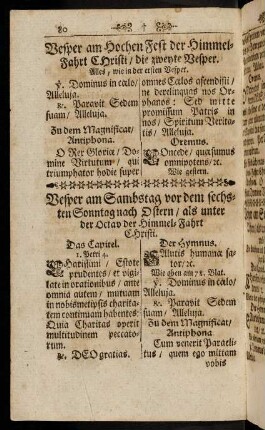 80
Vesper am Hochen Fest der Himmel-
Fahrt CHristi / die zweyte Vesper.
Alles, wie in der ersten Vesper.
℣. Dominus in cœlo /
Alleluja.
℟. Paravit Sedem
suam / Alleluja.
Zu dem Magnificat /
Antiphona.
O Rex Gloriæ / Do-
mine Virtutum / qui
triumphator hodie super
omnes Cœlos ascendisti /
ne derelinquas nos Or-
phanos: Sed mitte
promissum Patris in
nos / Spiritum Verita-
tis / Alleluja.
Oremus.
Concede / quæsumus
omnipotens / &c.
Wie gestern.
Vesper am Sambstag vor dem sechs-
ten Sonntag nach Ostern / als unter
der Octav der Himmel-Fahrt
CHristi.
Das Capitel.
1. Petri 4.
Charissimi / Estote
prudentes / et vigi-
late in orationibus / ante
omnia autem / mutuam
in nobismetipsis charita-
tem continuam habentes:
Quia Charitas operit
multitudinem peccato-
rum.
℟. DEO gratias.
Der Hymnus.
Salutis humanæ sa-
tor / &c.
Wie oben am 78. Blat.
℣. Dominus in cœlo /
Alleluja.
℟. Paravit Sedem
suam / Alleluja.
Zu dem Magnificat /
Antiphona
Cum venerit Paracli-
tus / quem ego mittam
vobis